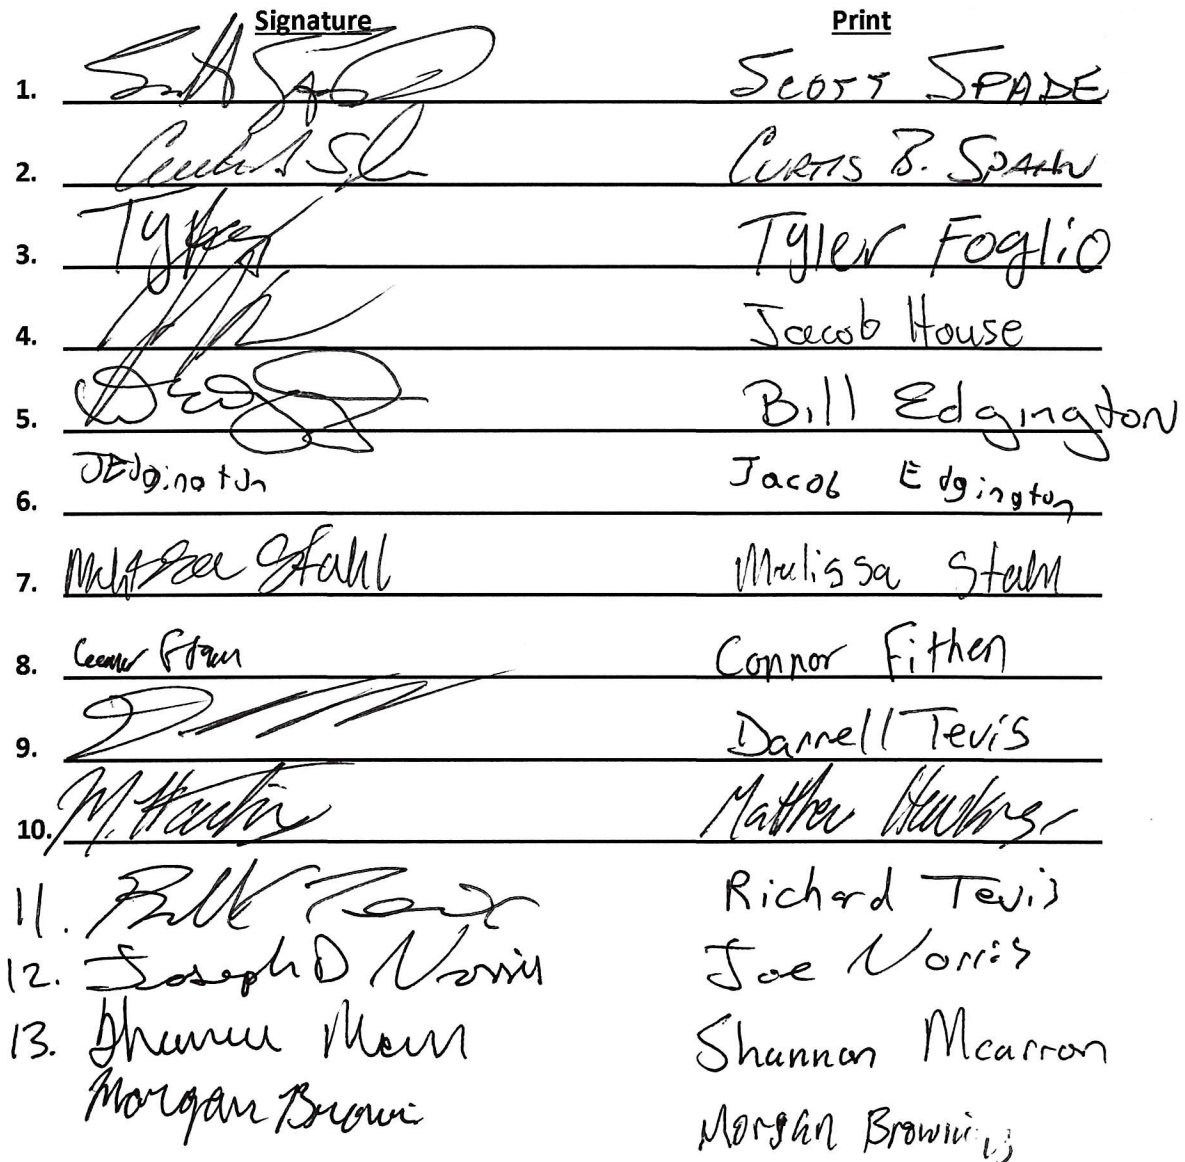 Signature Print
1. Scott Spade SCOTT SPADE
2. CURTIS B. SPAHN
3. Tyler Tyler Foglio
4. Jacob House
5. Bill Edgington
6. JEdgington Jacob Edgington
7. Melissa Stahl Melissa Stahl
8. Connor Fithen Connor Fithen
9. Darrell Tevis
10. M. Matthew
11. Tevis Richard Tevis
12. Joseph D Norris Joe Norris
13. Shannon Shannon Mcarron
Morgan Brown Morgan Browning